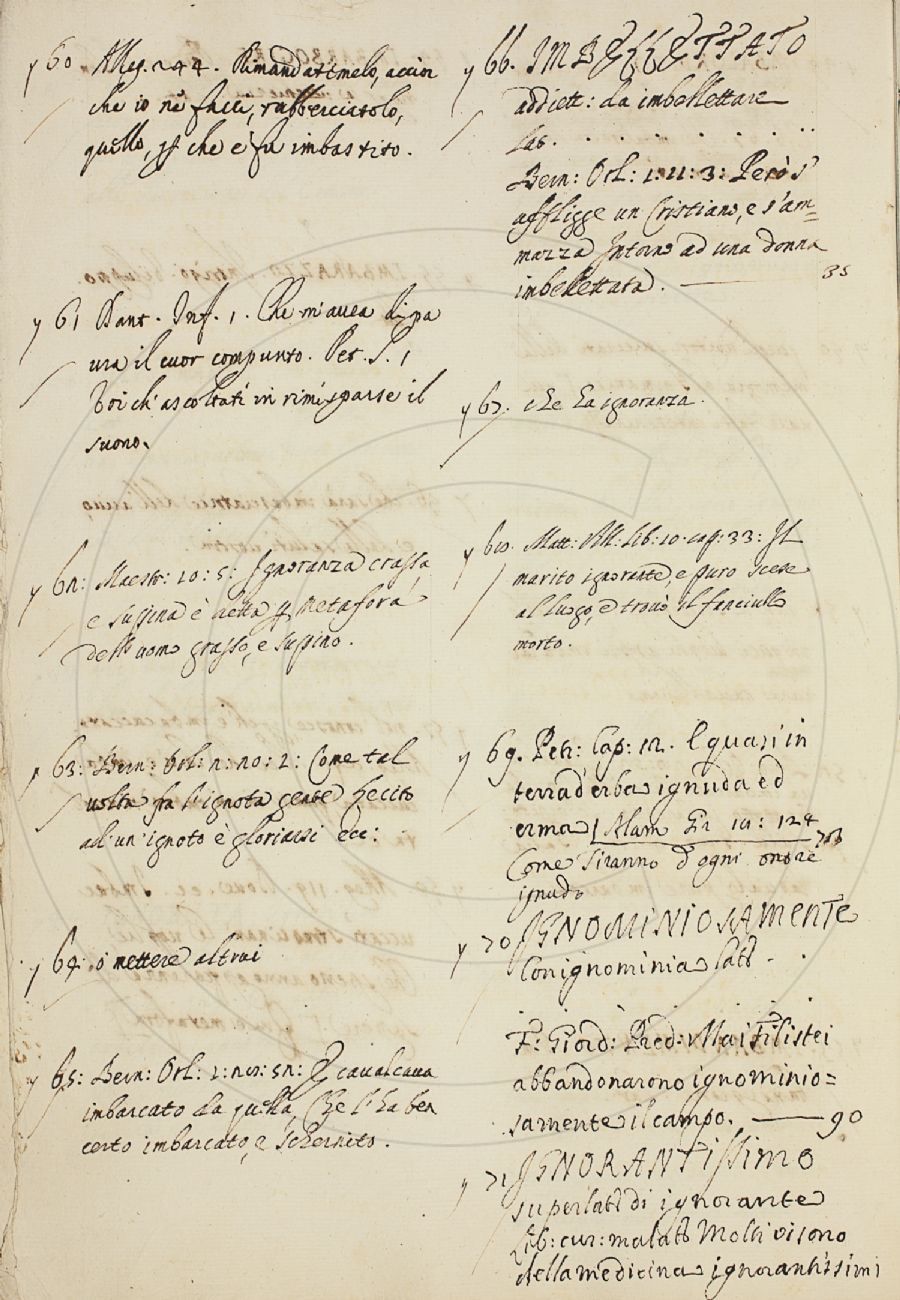 60 Alleg. 244. Rimandatemelo, accioc
che io ne facci, rabberciatolo,
quello, che è fu imbastito.
61 Dant. Inf. 1. Che m'avea di pa
ura il cuor compunto. Pet. S. 1
Voi ch'ascoltati in rime sparse il
suono.
62: Maestr: 10: 5: Ignoranza crassa
e suppina è detta metafora
dell'uomo grasso, e suppino.
63: Bern: Orl: 2: 20: 2: Come tal
volta fa l'ignota gente Hecito
ad un'ignoto è gloriarsi ecc:
64. o mettere altrui
65: Bern: Orl: 1: 5: E cavalcava
imbarcato da quella, Che l'ha ben
certo imbarcato, e schernito.
66. IMBELLETTATO
addiett: da imbellettare
Lat. . . . . . . . .
Bern: Orl: 1: 11: 3: Però s'
affligge un Cristiano, e s'am=
mazza Intorno ad una donna
imbellettata. — 35
67. che ha ignoranza.
68. Matt: Vill: lib: 10. cap: 33: Il
marito ignorante, e puro scese
al luogo, e trovò il fanciullo
morto.
69. Petr: Cap: 12. E quasi in
terra d'erba ignuda ed
erma Alam Gir 10: 124
Come Tiranno d'ogni onore
ignudo
70 IGNOMINIOSAMENTE
Con ignominia Lat. . .
F: Giord: Pred: Ma i Filistei
abbandonarono ignominio=
samente il campo. — 90
71 IGNORANTISSIMO
superlat. di ignorante
Lib: cur: malat. Molti vi sono
della medicina ignorantissimi